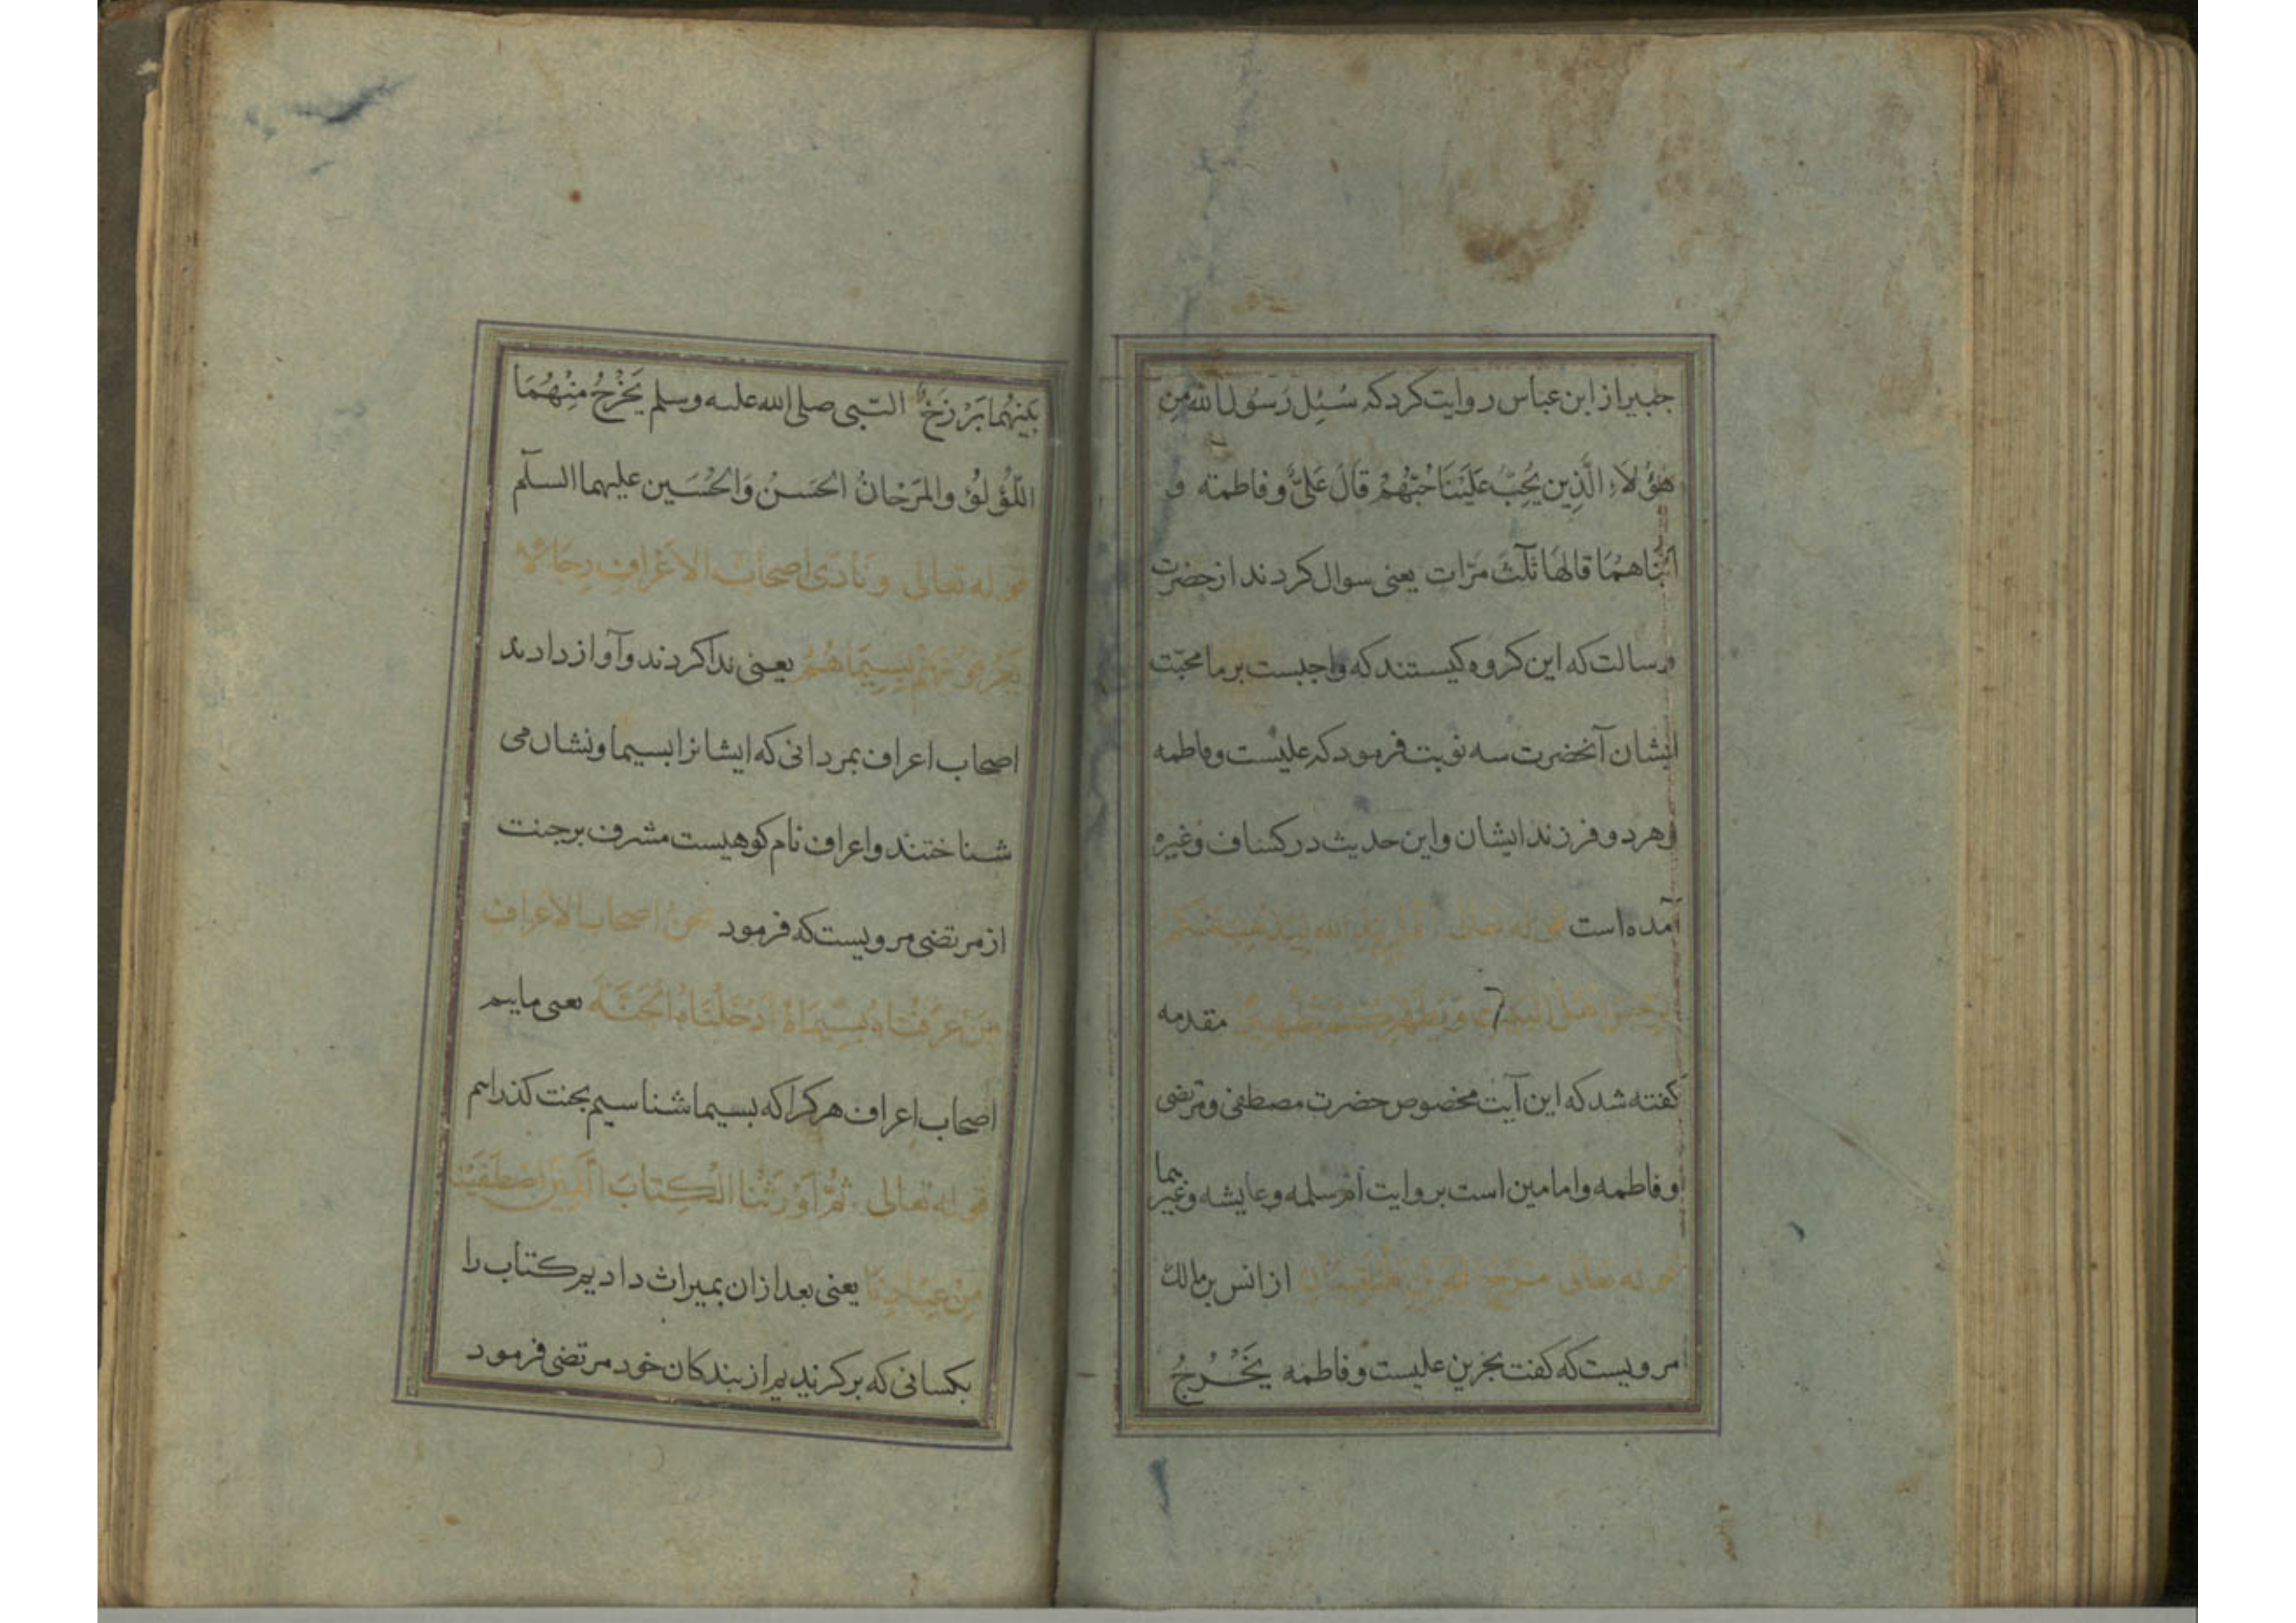 جبیر از ابن عباس روایت کرد که سُئِل رَسُول الله مِن
هٰؤُلَاءِ الَّذِین یُحِبّ عَلَیْنَا حُبّهُمْ قَالَ عَلِیٌّ و فاطمة و
اَبْنَاهُمَا قالهَا ثَلٰثَ مَرّات یعنی سوال کردند از حضرت
رسالت که این کروه کیستند که واجبست بر ما محبّت
ایشان آنحضرت سه نوبت فرمود که علیست و فاطمه
و هر دو فرزند ایشان و این حدیث در کشاف و غیره
آمده است قوله تعالی یرید الله لیذهب عنکم
الرجس اهل البیت و یطهرکم تطهیرا مقدمه
کفته شد که این آیت مخصوص حضرت مصطفی و مرتضی
و فاطمه و امامین است بروایت امّ سلمه و عایشه و غیرهما
قوله تعالی مرج البحرین یلتقیان از انس بن مالک
مرویست که کفت بحرین علیست و فاطمه یَخْرُجُ
بَیْنَهُما بَرْزَخٌ النّبی صلی الله علیه وسلم یَخْرُجُ مِنْهُمَا
اللّؤْلُؤُ والمَرْجَانُ الحَسَنْ وَالحُسَین علیهما السلٓم
قوله تعالی و نَادَی اصحابُ الاَعْرافِ رِجَالًا
یَعْرِفُونَهُمْ بِسِیمَاهُمْ یعنی ندا کردند و آواز دادند
اصحاب اعراف بمردانی که ایشانرا بسیما و نشان می
شناختند و اعراف نام کوهیست مشرف بر جنت
از مرتضی مرویست که فرمود نحنُ اصحاب الاعراف
مَنْ عَرَفْنَاهُ بِسِیْمَاهُ اَدْخَلْنَاهُ الْجَنَّةَ یعنی ماییم
اصحاب اعراف هر کرا که بسیما شناسیم بجنت کذرانیم
قوله تعالی ثُمَّ اَوْرَثْنَا الْکِتَابَ الَّذِینَ اصْطَفَیْنَا
مِنْ عِبَادِنَا یعنی بعد از آن بمیراث دادیم کتاب را
بکسانی که بر کزیدیم از بندکان خود مرتضی فرمود